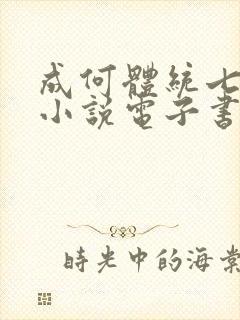 成何體統七
小說電子書
時光中的海棠